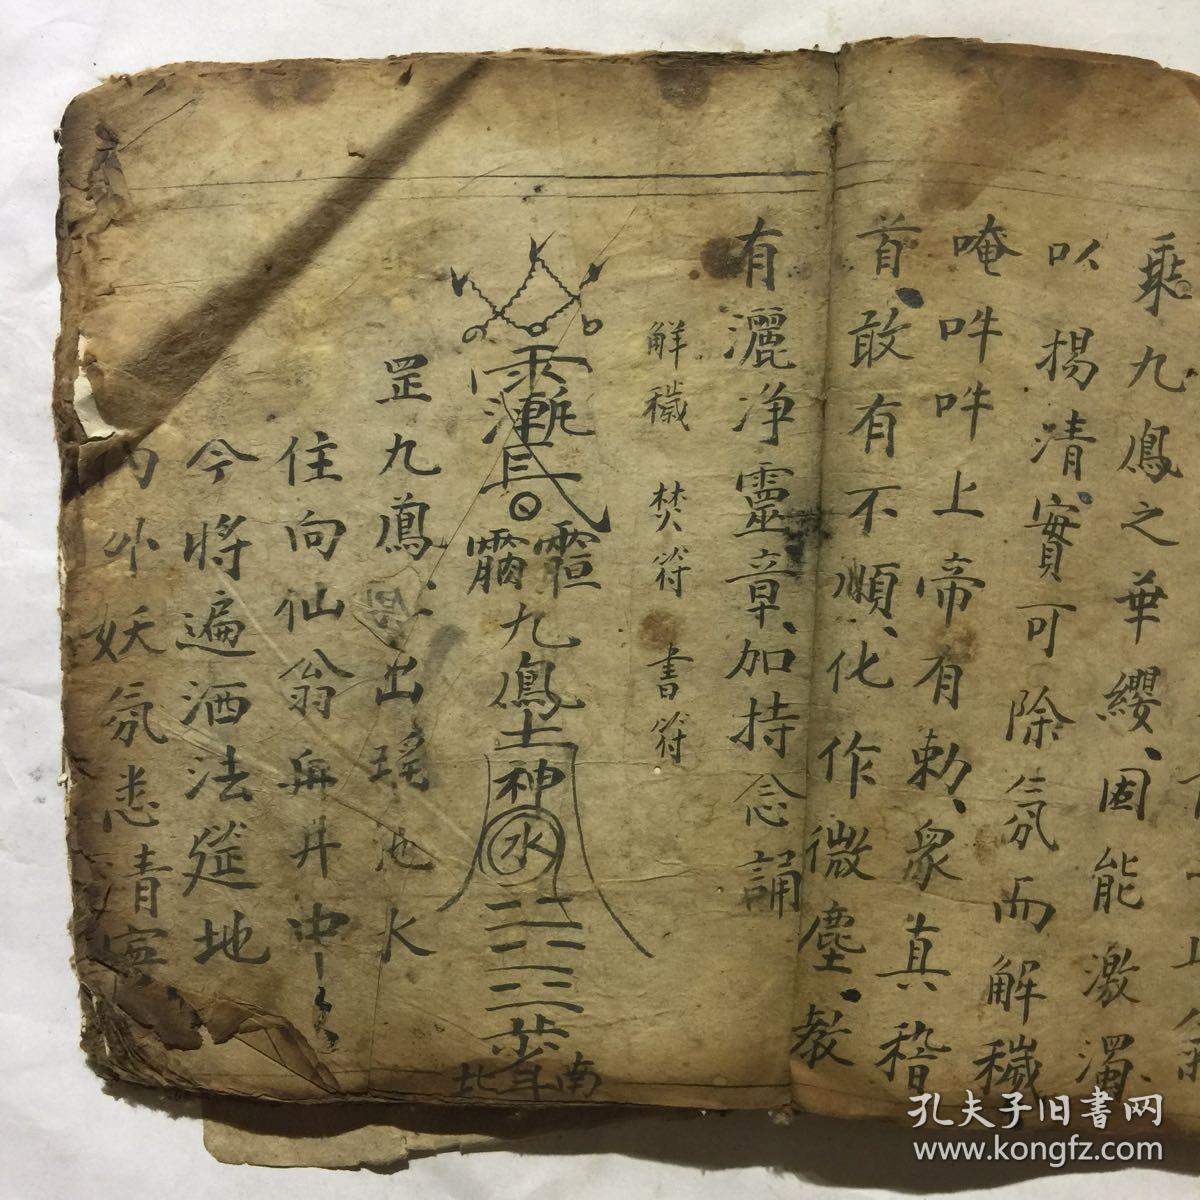 乘九鳳之華纓、固能激濁
以揚清、實可除氛而解穢
唵吽吽上帝有勅、衆真稽
首、敢有不順、化作微塵、教
有灑净靈章、加持念誦
解穢 焚符 書符
九鳳土神
水
北 南
罡九鳳出瑤池水
住向仙翁舟井中
今將遍洒法筵地
內外妖氛悉清寧
孔夫子旧书网
www.kongfz.com